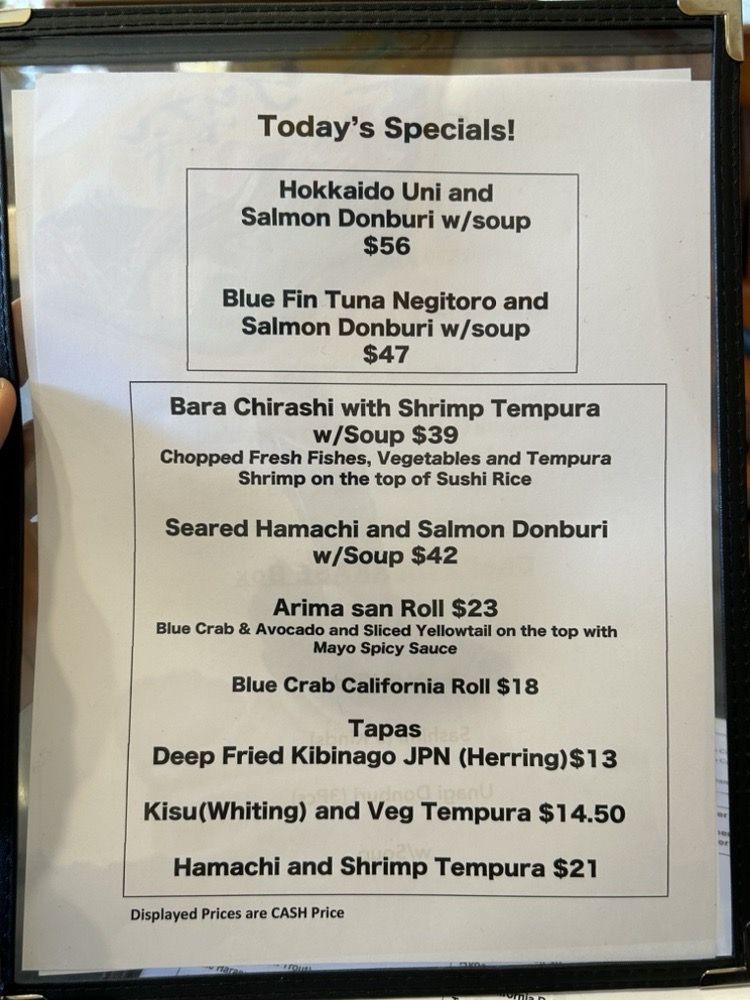 Today's Specials!
Hokkaido Uni and
Salmon Donburi w/soup
$56
Blue Fin Tuna Negitoro and
Salmon Donburi w/soup
$47
Bara Chirashi with Shrimp Tempura
w/Soup $39
Chopped Fresh Fishes, Vegetables and Tempura
Shrimp on the top of Sushi Rice
Seared Hamachi and Salmon Donburi
w/Soup $42
Arima san Roll $23
Blue Crab & Avocado and Sliced Yellowtail on the top with
Mayo Spicy Sauce
Blue Crab California Roll $18
Tapas
Deep Fried Kibinago JPN (Herring)$13
Kisu(Whiting) and Veg Tempura $14.50
Hamachi and Shrimp Tempura $21
Displayed Prices are CASH Price